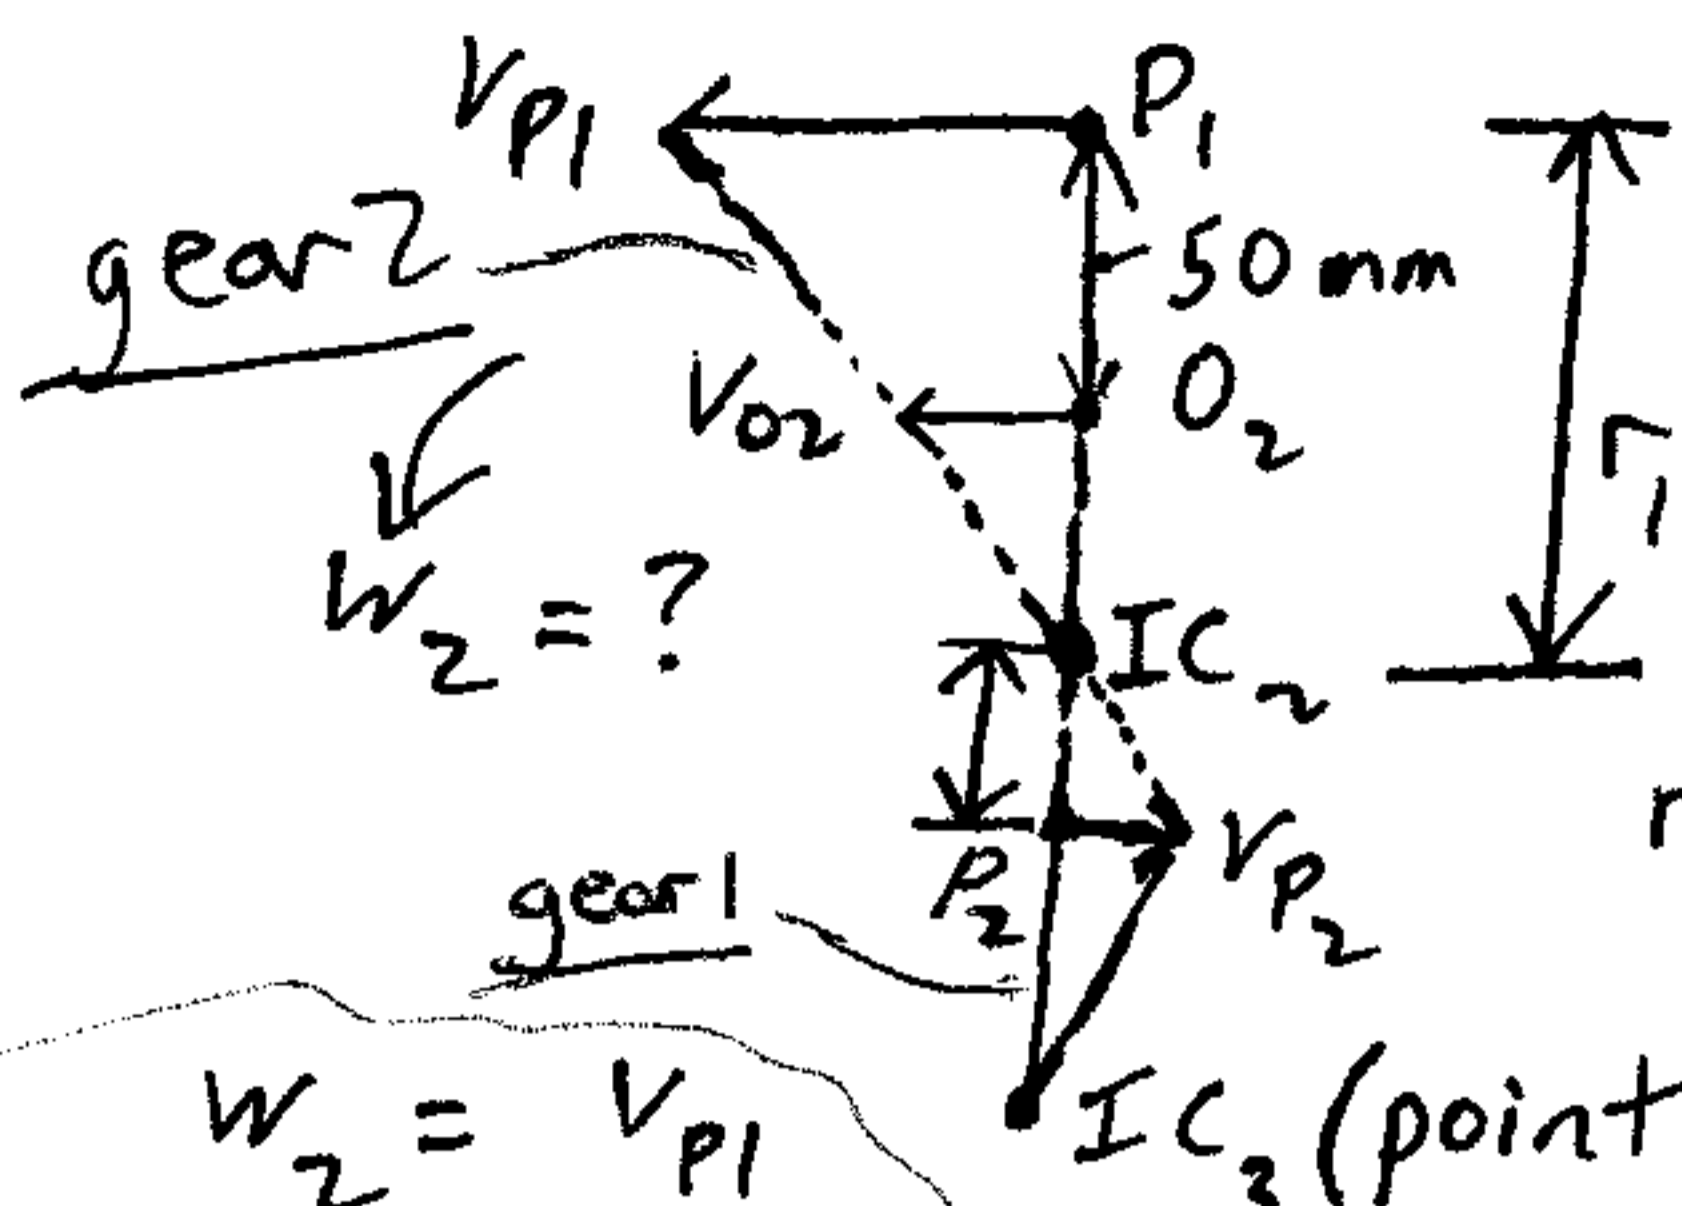 V_P1
P_1
gear 2
50 mm
V_O2
O_2
r_1
W_2 = ?
IC_2
r
P_2
V_P2
gear 1
W_2 = V_P1
IC_3 (point